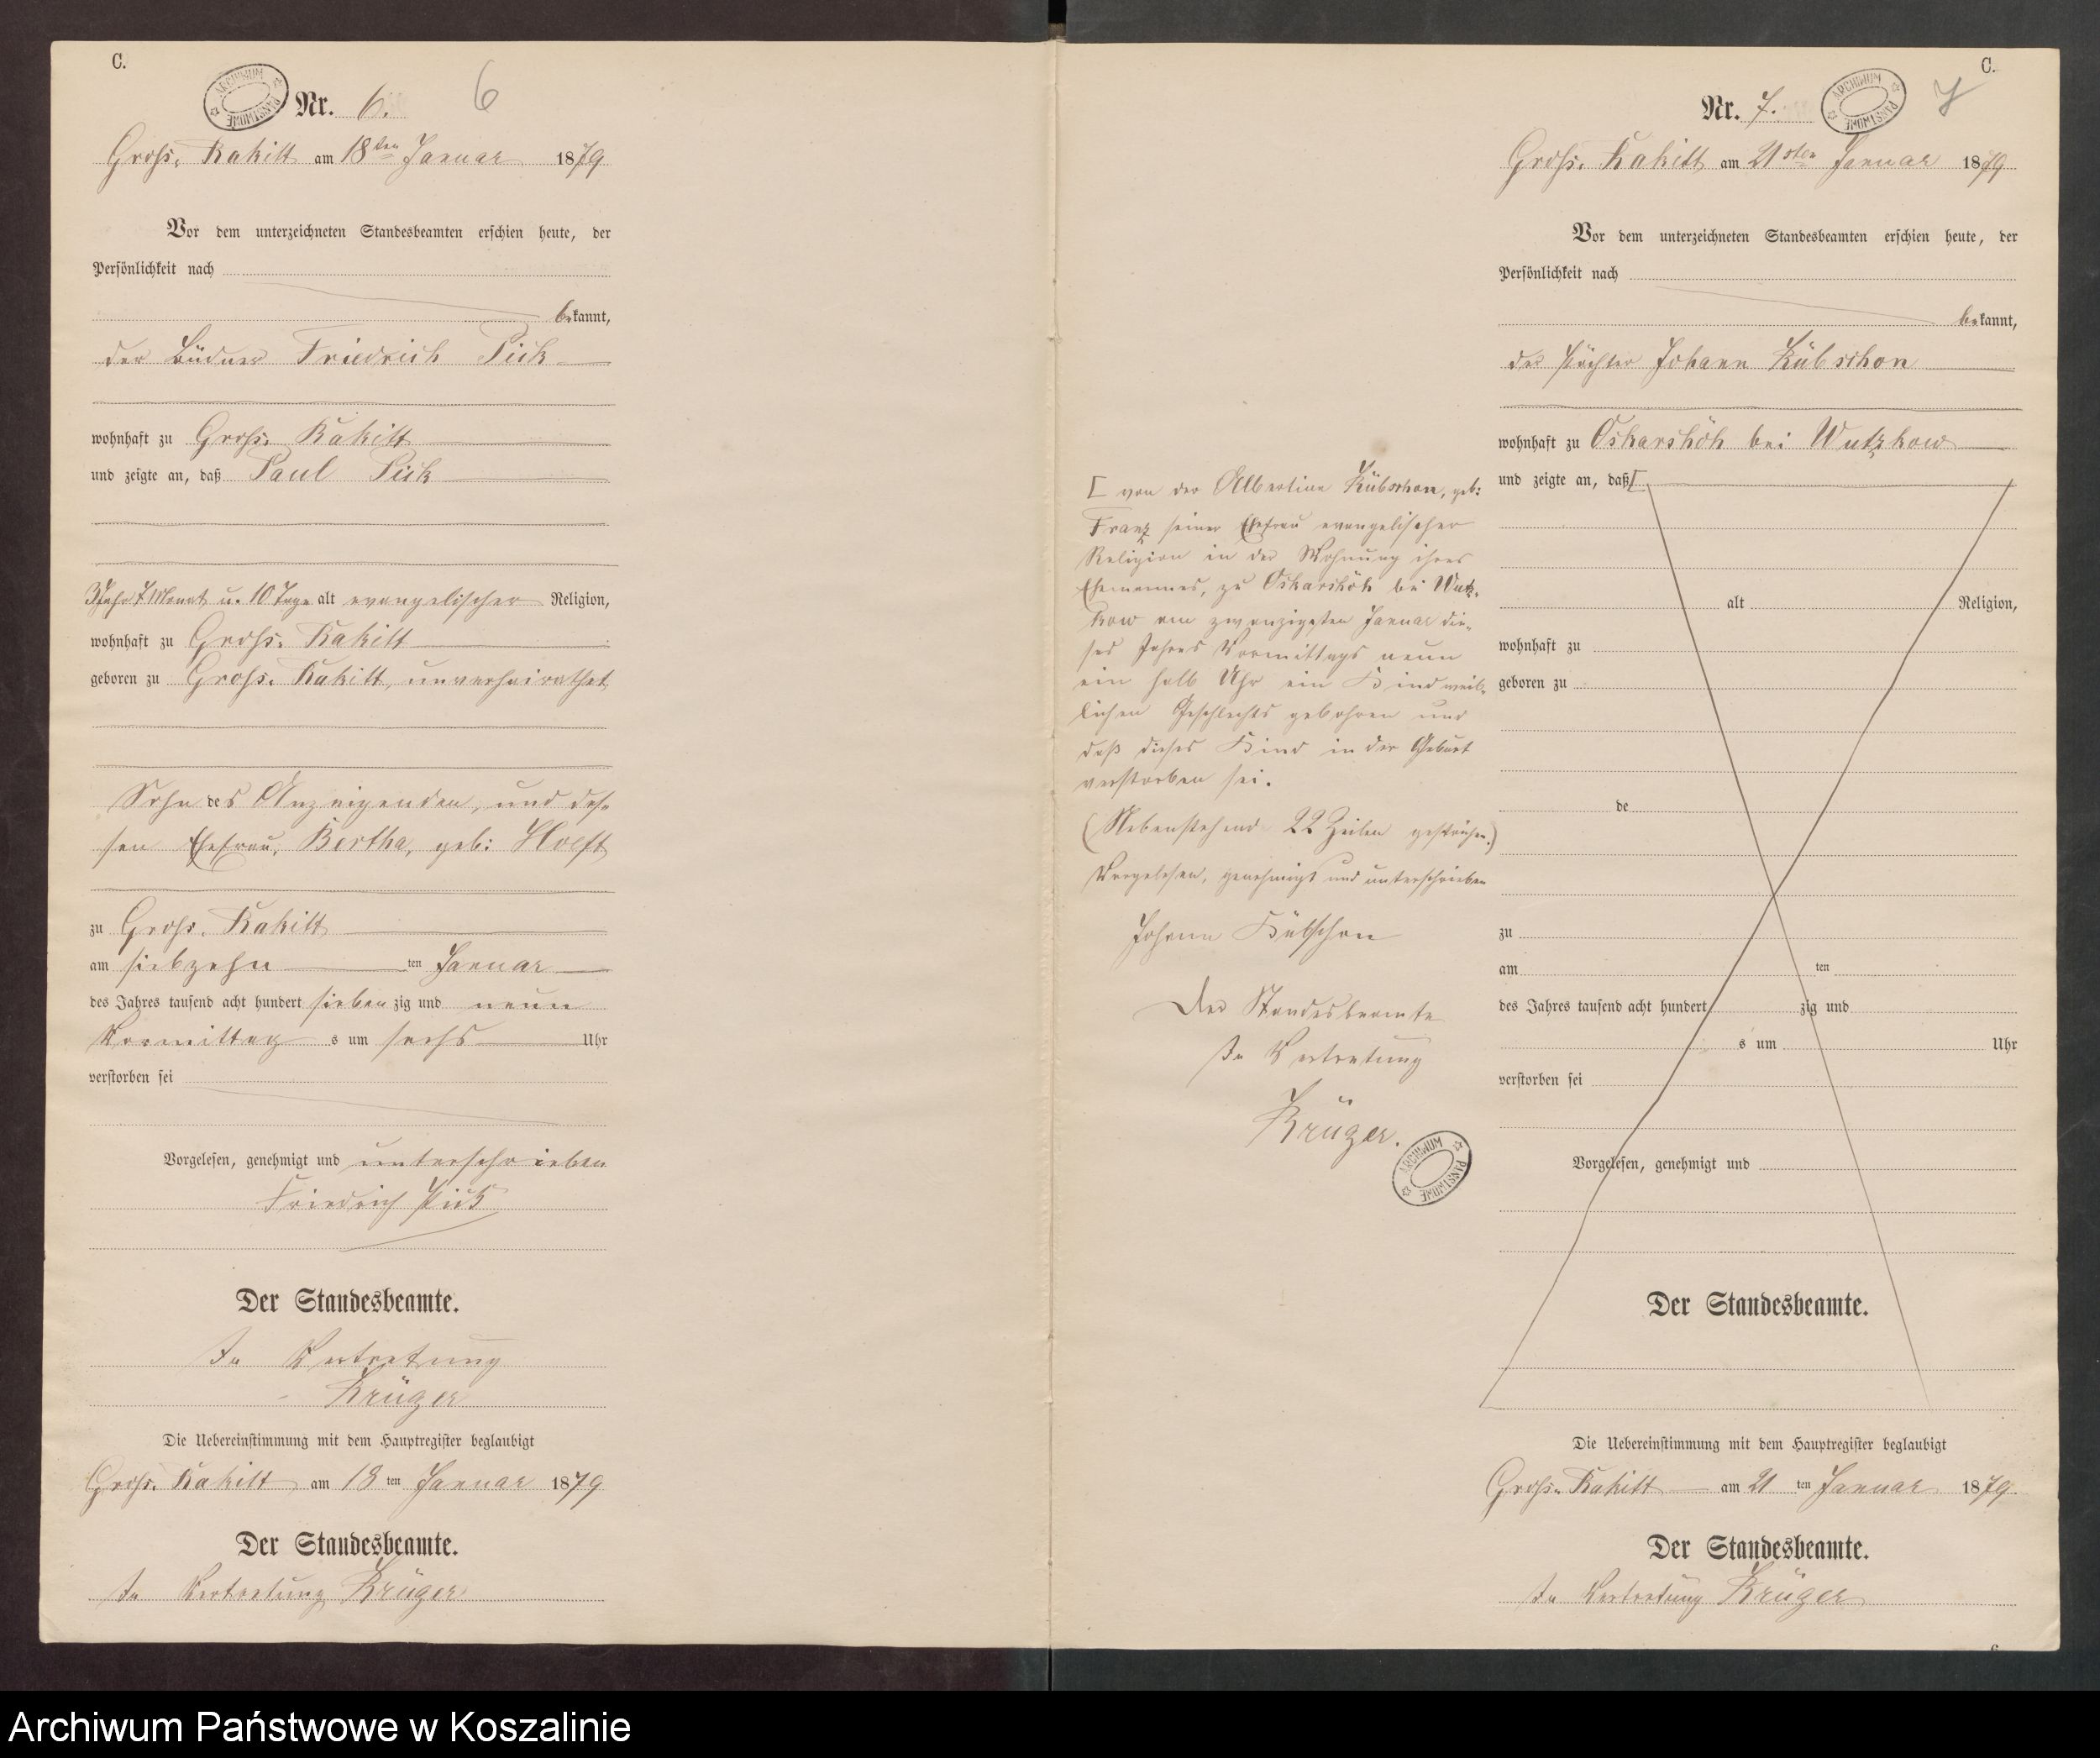 C.
ARCHIWUM PAŃSTWOWE
Nr. 6.
6
Groß. Rakitt am 18ten Januar 1879
Vor dem unterzeichneten Standesbeamten erschien heute, der
Persönlichkeit nach
bekannt,
der Büdner Friedrich Pick
wohnhaft zu Groß. Rakitt
und zeigte an, daß Paul Pick
3 Jahr 7 Monat u. 10 Tage alt evangelischer Religion,
wohnhaft zu Groß. Rakitt
geboren zu Groß. Rakitt, unverheirathet
Sohn des Anzeigenden, und des-
sen Ehefrau, Bertha, geb:
zu Groß. Rakitt
am siebzehn ten Januar
des Jahres tausend acht hundert siebenzig und neun
Vormittags um sechs Uhr
verstorben sei
Vorgelesen, genehmigt und unterschrieben
Friedrich Pick
Der Standesbeamte.
In Vertretung
Krüger
Die Uebereinstimmung mit dem Hauptregister beglaubigt
Groß. Rakitt am 18ten Januar 1879
Der Standesbeamte.
In Vertretung Krüger
C.
Nr. 7.
ARCHIWUM PAŃSTWOWE
7
Groß. Rakitt am 21sten Januar 1879
Vor dem unterzeichneten Standesbeamten erschien heute, der
Persönlichkeit nach
bekannt,
der Pächter Johann Kübschon
wohnhaft zu Oskarshöh bei Wutzkow
und zeigte an, daß [
alt Religion,
wohnhaft zu
geboren zu
de
zu
am ten
des Jahres tausend acht hundert zig und
s um Uhr
verstorben sei
Vorgelesen, genehmigt und
Der Standesbeamte.
[ von der Albertine Kübschon, geb:
Franz seiner Ehefrau evangelischer
Religion in der Wohnung ihres
Ehemannes, zu Oskarshöh bei Wutz-
kow am zwanzigsten Januar die-
ses Jahres Vormittags neun
ein halb Uhr ein Kind weib-
lichen Geschlechts geboren und
daß dieses Kind in der Geburt
verstorben sei.
(Nebenstehend 22 Zeilen gestrichen.)
Vorgelesen, genehmigt und unterschrieben
Johann Kübschon
Der Standesbeamte
In Vertretung
Krüger.
ARCHIWUM PAŃSTWOWE
Die Uebereinstimmung mit dem Hauptregister beglaubigt
Groß. Rakitt am 21ten Januar 1879
Der Standesbeamte.
In Vertretung Krüger
Archiwum Państwowe w Koszalinie